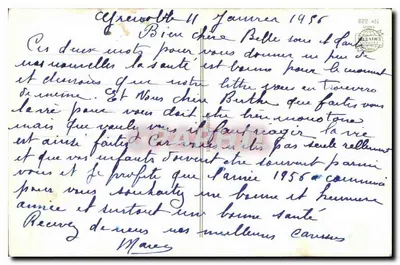 Grenoble 11 Janvier 1956
Bien chère Belle sœur et
Ces deux mots pour vous donner un peu de
nos nouvelles la santé est bonne pour le moment
et desirons que notre lettre vous en trouvera
de meme. Et Vous chere Berthe que faites vous
pour vous doit etre bien monotone
mais que voulez vous il faut la vie
est ainsi faite Car vous etes pas seule reellement
et que vos enfants doivent etre souvent parmi
vous et Je profite que l'année 1956 commence
pour vous souhaiter une bonne et heureuse
année et surtout une bonne santé
Recevez de nous nos meilleurs Caresses